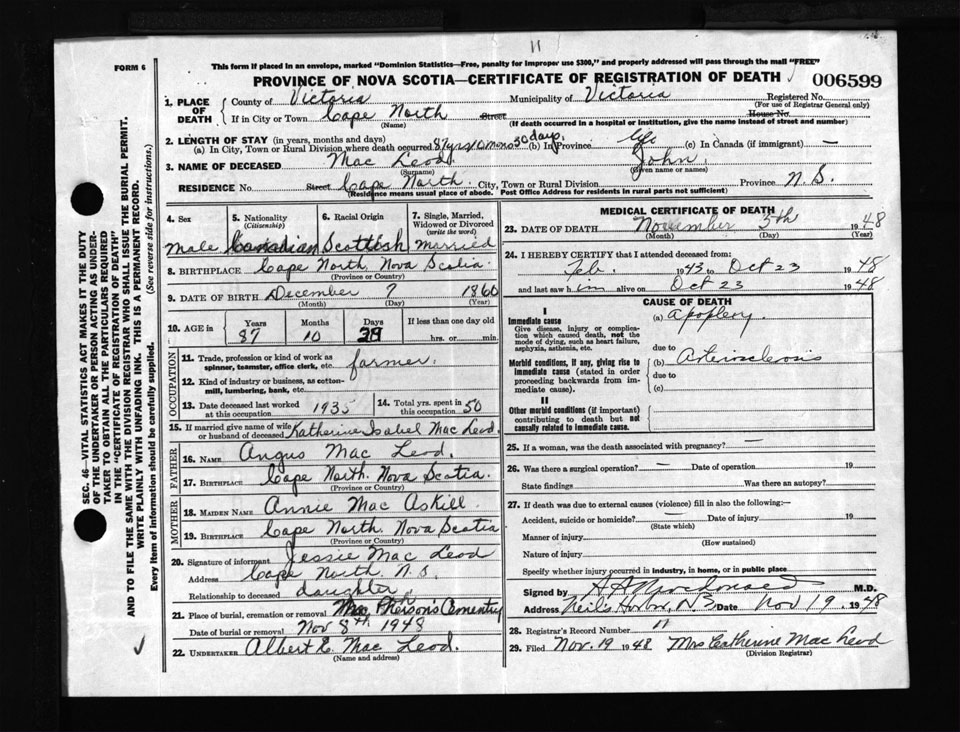 11
FORM 6
This form if placed in an envelope, marked "Dominion Statistics—Free, penalty for improper use $300," and properly addressed will pass through the mail "FREE"
PROVINCE OF NOVA SCOTIA—CERTIFICATE OF REGISTRATION OF DEATH
006599
1. PLACE OF DEATH { County of Victoria Municipality of Victoria Registered No.
(For use of Registrar General only)
If in City or Town Cape North Street House No.
(Name) (If death occurred in a hospital or institution, give the name instead of street and number)
2. LENGTH OF STAY (in years, months and days)
(a) In City, Town or Rural Division where death occurred 87 yrs 10 mons 30 days. (b) In Province life (c) In Canada (if immigrant) —
3. NAME OF DECEASED Mac Leod John
(Surname) (Given name or names)
RESIDENCE No. Street Cape North. City, Town or Rural Division Province N.S.
(Residence means usual place of abode. Post Office Address for residents in rural parts not sufficient)
4. Sex 5. Nationality (Citizenship) 6. Racial Origin 7. Single, Married, Widowed or Divorced (write the word)
Male Canadian Scottish Married
8. BIRTHPLACE Cape North Nova Scotia.
(Province or Country)
9. DATE OF BIRTH December 7 1860
(Month) (Day) (Year)
10. AGE in Years Months Days If less than one day old
87 10 hrs. or min.
OCCUPATION
11. Trade, profession or kind of work as spinner, teamster, office clerk, etc. farmer.
12. Kind of industry or business, as cotton-mill, lumbering, bank, etc.
13. Date deceased last worked at this occupation 1935 14. Total yrs. spent in this occupation 50
15. If married give name of wife or husband of deceased Katherine Isabel Mac Leod.
FATHER
16. NAME Angus Mac Leod.
17. BIRTHPLACE Cape North. Nova Scotia.
(Province or Country)
MOTHER
18. MAIDEN NAME Annie Mac Askill
19. BIRTHPLACE Cape North. Nova Scotia
(Province or Country)
20. Signature of informant Jessie Mac Leod
Address Cape North N.S.
Relationship to deceased daughter
21. Place of burial, cremation or removal Mac Pherson's Cementry
Date of burial or removal Nov 8th 1948
22. UNDERTAKER Albert E. Mac Leod.
(Name and address)
MEDICAL CERTIFICATE OF DEATH
23. DATE OF DEATH November 5th 1948
(Month) (Day) (Year)
24. I HEREBY CERTIFY that I attended deceased from:
Feb. 1943 to Oct 23 1948
and last saw him alive on Oct 23 1948
CAUSE OF DEATH
I
Immediate cause (a) Apoplexy.
Give disease, injury or complication which caused death, not the mode of dying, such as heart failure, asphyxia, asthenia, etc.
due to
Morbid conditions, if any, giving rise to immediate cause (stated in order proceeding backwards from immediate cause). (b) Arteriosclerosis
due to
(c)
II
Other morbid conditions (if important) contributing to death but not causally related to immediate cause.
25. If a woman, was the death associated with pregnancy? —
26. Was there a surgical operation? — Date of operation 19
State findings Was there an autopsy?
27. If death was due to external causes (violence) fill in also the following:—
Accident, suicide or homicide? — Date of injury 19
(State which)
Manner of injury
(How sustained)
Nature of injury
Specify whether injury occurred in industry, in home, or in public place
Signed by M.D.
Address Neils Harbor, NS Date Nov 19. 1948
28. Registrar's Record Number 11
29. Filed Nov. 19 1948 Mrs Catherine Mac Leod
(Division Registrar)
SEC. 46—VITAL STATISTICS ACT MAKES IT THE DUTY
OF THE UNDERTAKER OR PERSON ACTING AS UNDER-
TAKER TO OBTAIN ALL THE PARTICULARS REQUIRED
IN THE "CERTIFICATE OF REGISTRATION OF DEATH"
AND TO FILE THE SAME WITH THE DIVISION REGISTRAR WHO SHALL ISSUE THE BURIAL PERMIT.
WRITE PLAINLY WITH UNFADING INK. THIS IS A PERMANENT RECORD.
Every item of information should be carefully supplied. (See reverse side for instructions.)